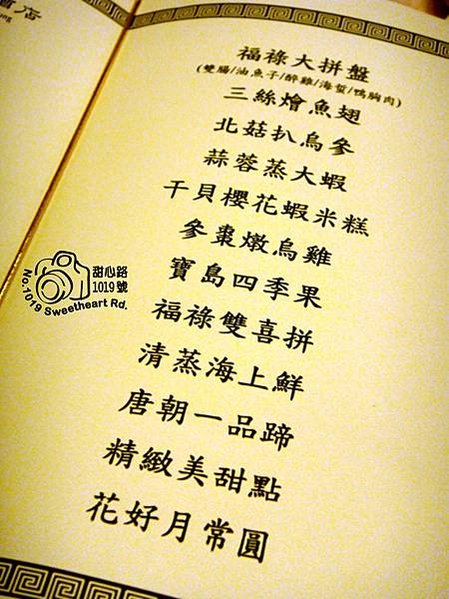 酒店
福祿大拼盤
(雙腸/油魚子/醉雞/海蜇/鴨胸肉)
三絲燴魚翅
北菇扒烏參
蒜蓉蒸大蝦
干貝櫻花蝦米糕
參棗燉烏雞
寶島四季果
福祿雙喜拼
清蒸海上鮮
唐朝一品蹄
精緻美甜點
花好月常圓
甜心路
1019號
No.1019 Sweetheart Rd.